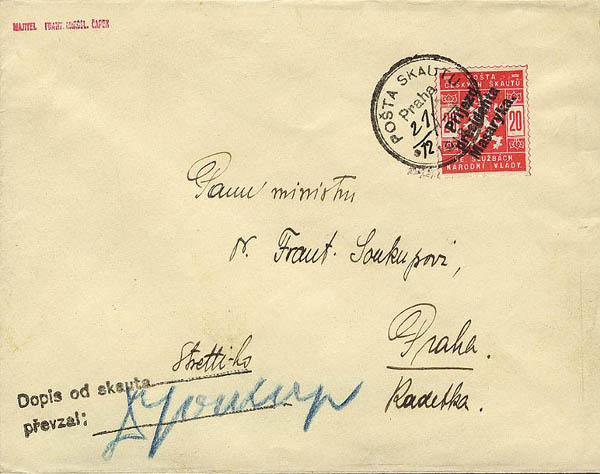 MAJITEL FRANT. ČAPEK
POŠTA SKAUTŮ
Praha
21/12
POŠTA
ČESKÝCH SKAUTŮ
20
Příjezd
presidenta
Masaryka.
VE SLUŽBÁCH
NÁRODNÍ VLÁDY
Panu ministru
Dr. Frant. Soukupovi,
Praha.
Radetka.
Dopis od skauta
převzal: